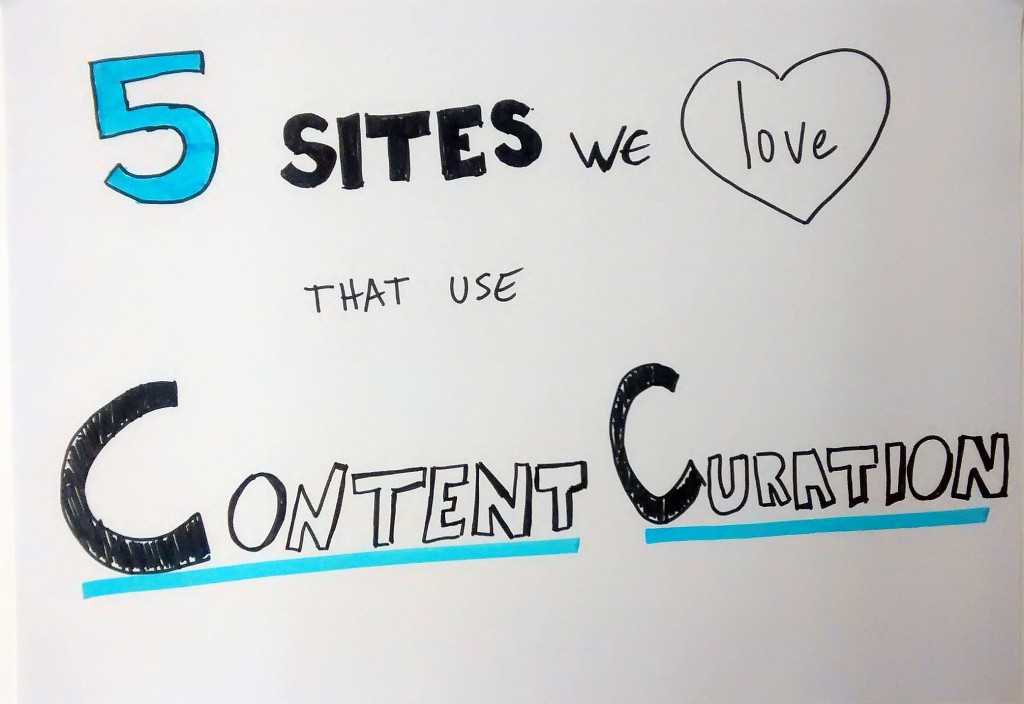 5 SITES WE love
THAT USE
CONTENT CURATION